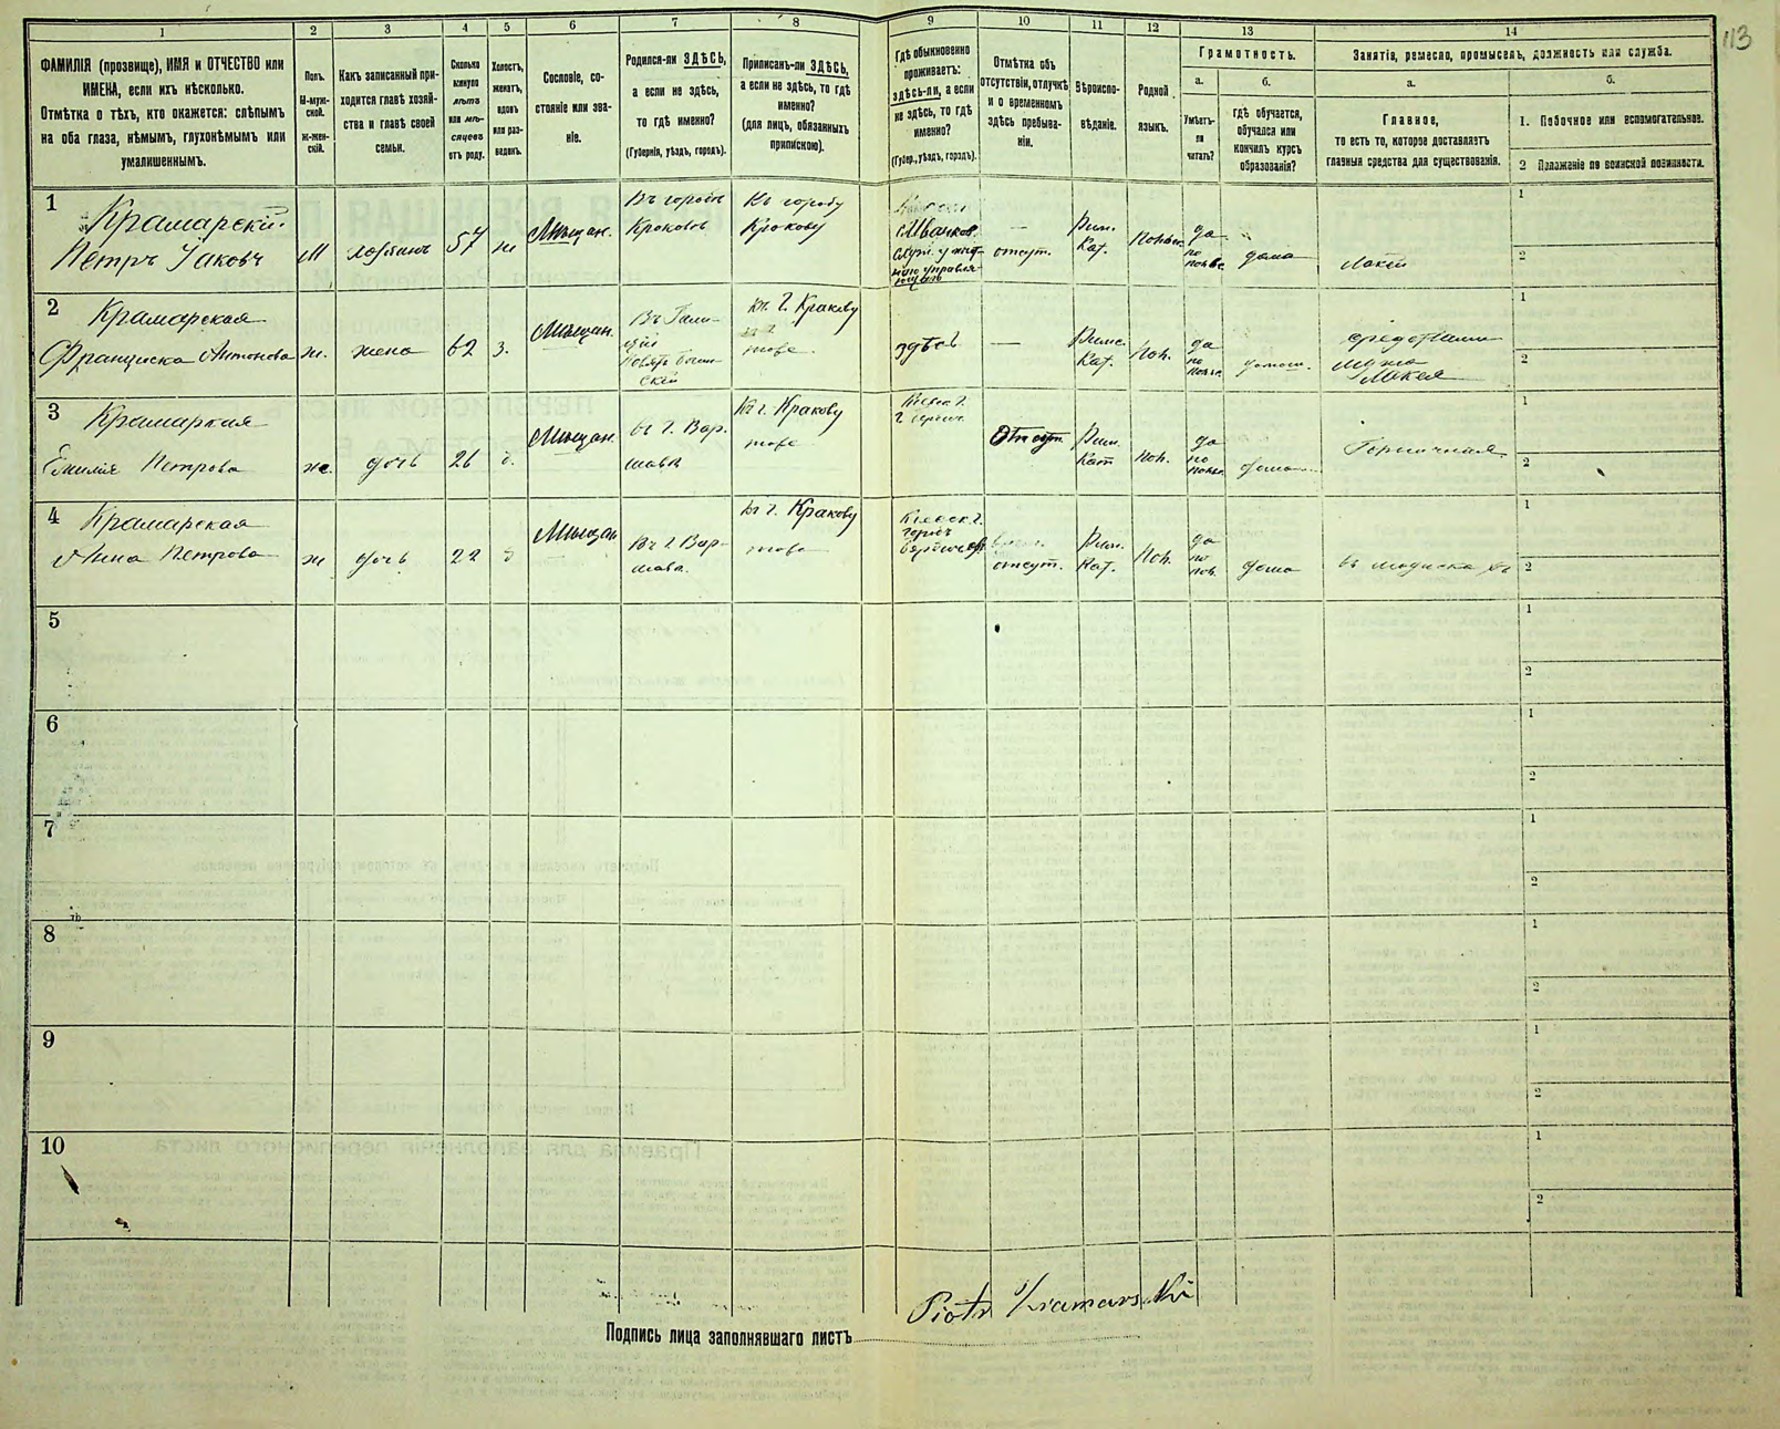 113
1 2 3 4 5 6 7 8 9 10 11 12 13 14
ФАМИЛІЯ (прозвище), ИМЯ и ОТЧЕСТВО или
ИМЕНА, если ихъ нѣсколько.
Отмѣтка о тѣхъ, кто окажется: слѣпымъ
на оба глаза, нѣмымъ, глухонѣмымъ или
умалишеннымъ.
Полъ.
М-муж-
ской.
ж-жен-
скій.
Какъ записанный при-
ходится главѣ хозяй-
ства и главѣ своей
семьи.
Сколько
минуло
лѣтъ
или мѣ-
сяцевъ
отъ роду.
Холостъ,
женатъ,
вдовъ
или раз-
веденъ.
Сословіе, со-
стояніе или зва-
ніе.
Родился-ли ЗДѢСЬ,
а если не здѣсь,
то гдѣ именно?
(Губернія, уѣздъ, городъ).
Приписанъ-ли ЗДѢСЬ,
а если не здѣсь, то гдѣ
именно?
(для лицъ, обязанныхъ
припискою).
Гдѣ обыкновенно
проживаетъ:
здѣсь-ли, а если
не здѣсь, то гдѣ
именно?
(Губер., уѣздъ, городъ).
Отмѣтка объ
отсутствіи, отлучкѣ
и о временномъ
здѣсь пребыва-
ніи.
Вѣроиспо-
вѣданіе.
Родной
языкъ.
Грамотность.
а.
Умѣетъ-
ли
читать?
б.
гдѣ обучается,
обучался или
кончилъ курсъ
образованія?
Занятія, ремесло, промыселъ, должность или служба.
а.
Главное,
то есть то, которое доставляетъ
главныя средства для существованія.
б.
1. Побочное или вспомогательное.
2 Положеніе по воинской повинности.
1
Крамарскій
Петръ Яковъ
М
57
Мѣщан.
Въ городѣ
Краковѣ
Къ городу
Кракову
отсут.
Рим.
Кат.
да
по
дома
Лакей
1
2
2
Крамарская
Франциска Антонова
ж.
жена
62
з.
Мѣщан.
Въ Гали-
ціи
къ г. Кракову
тоже
здѣсь
—
Римс.
Кат.
Пол.
да
по
средствами
мужа
Лакея
1
2
3
Крамарская
Емилія Петрова
ж.
дочь
26
Мѣщан.
въ г. Вар-
шавѣ
къ г. Кракову
тоже
Отсут.
Рим.
Кат
Пол.
да
по
дома
Горничная
1
2
4
Крамарская
Анна Петрова
ж
дочь
22
Мѣщан
Въ г. Вар-
шавѣ.
къ г. Кракову
тоже
Кіевск. г.
отсут.
Рим.
Кат.
Пол.
да
по
пол.
дома
1
2
5
1
2
6
1
2
7
1
2
8
1
2
9
1
2
10
1
2
Piotr Kramarski
Подпись лица заполнявшаго листъ